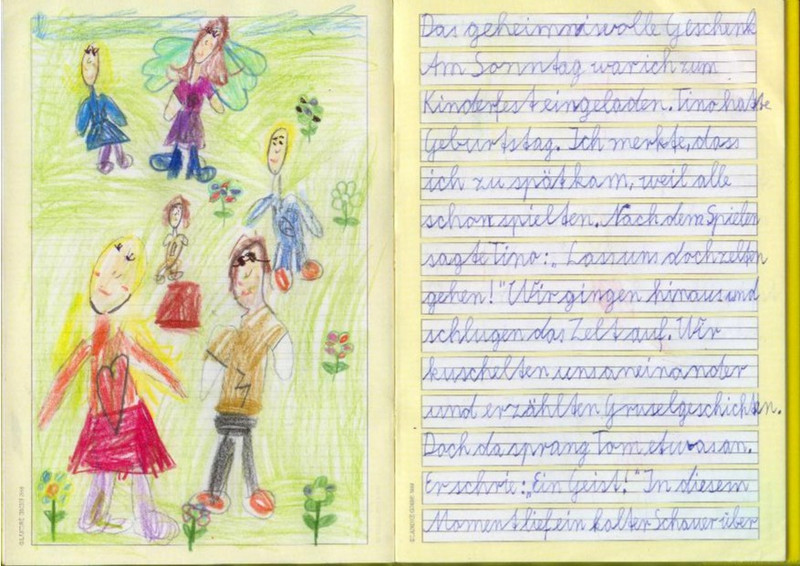 Das geheimnisvolle Geschenk
Am Sonntag war ich zum
Kinderfest eingeladen. Tino hatte
Geburtstag. Ich merkte, dass
ich zu spät kam, weil alle
schon spielten. Nach dem Spielen
sagte Tino: „Lass uns doch zelten
gehen!" Wir gingen hinaus und
schlugen das Zelt auf. Wir
kuschelten uns aneinander
und erzählten Gruselgeschichten.
Doch da sprang Tom etwas an.
Er schrie: „Ein Geist!" In diesem
Moment lief ein kalter Schauer über